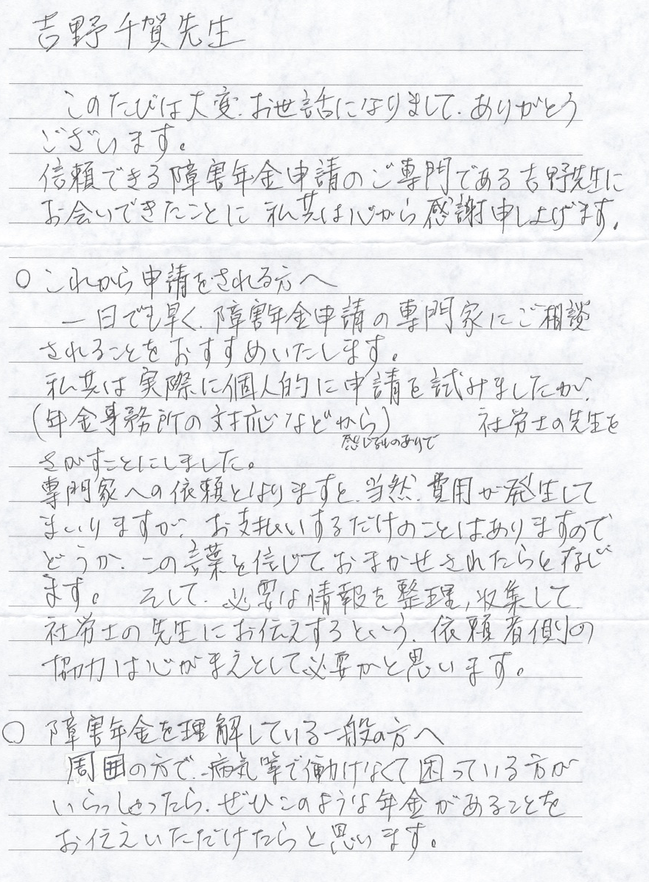 吉野千賀先生
このたびは大変、お世話になりまして、ありがとう
ございます。
信頼できる障害年金申請のご専門である吉野先生に
お会いできたことに私共は心から感謝申し上げます。
○ これから申請をされる方へ
一日でも早く、障害年金申請の専門家にご相談
されることをおすすめいたします。
私共は実際に個人的に申請を試みましたが、
(年金事務所の対応などから) 社労士の先生を
感じるものありで
さがすことにしました。
専門家への依頼となりますと、当然、費用が発生して
まいりますが、お支払いするだけのことはありますので
どうか、この言葉を信じておまかせされたらと存じ
ます。 そして、必要な情報を整理,収集して
社労士の先生にお伝えするという、依頼者側の
協力は心がまえとして必要かと思います。
○ 障害年金を理解している一般の方へ
周囲の方で、病気等で働けなくて困っている方が
いらっしゃったら、ぜひこのような年金があることを
お伝えいただけたらと思います。